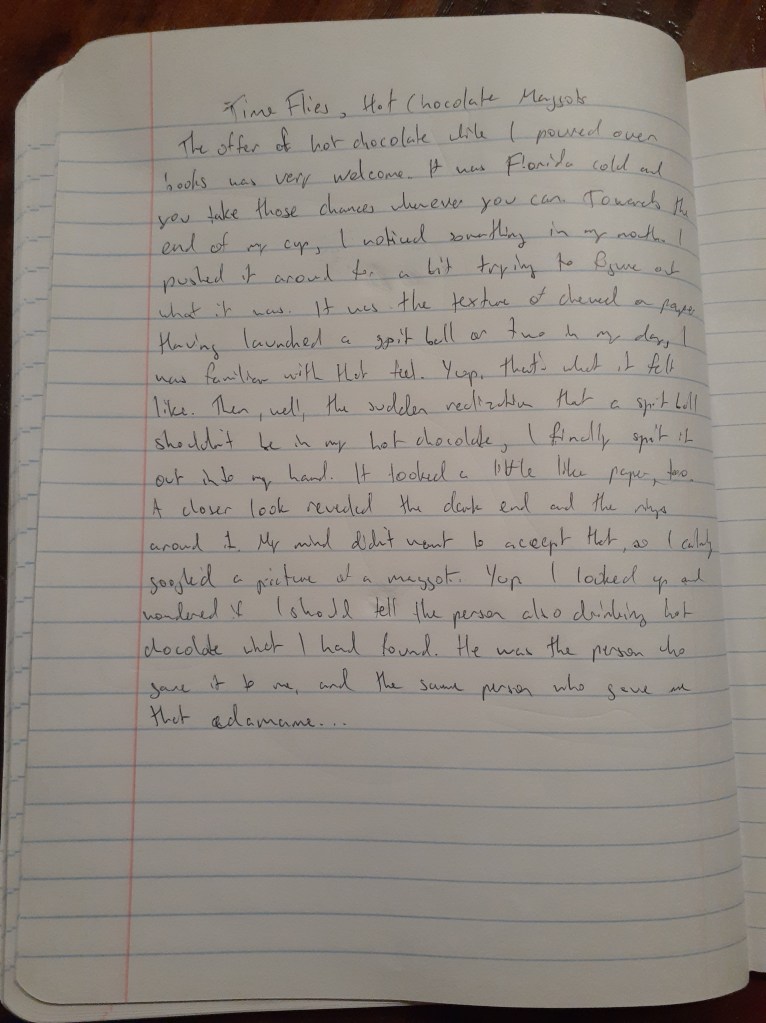 Time Flies, Hot Chocolate Maggots
The offer of hot chocolate while I poured over
books was very welcome. It was Florida cold and
you take those chances whenever you can. Towards the
end of my cup, I noticed something in my mouth. I
pushed it around for a bit trying to figure out
what it was. It was the texture of chewed on paper.
Having launched a spit ball or two in my day, I
was familiar with that feel. Yup, that's what it felt
like. Then, well, the sudden realization that a spit ball
shouldn't be in my hot chocolate, I finally spit it
out into my hand. It looked a little like paper, too.
A closer look revealed the dark end and the rings
around it. My mind didn't want to accept that, so I calmly
googled a picture of a maggot. Yup I looked up and
wondered if I should tell the person also drinking hot
chocolate what I had found. He was the person who
gave it to me, and the same person who gave me
that edamame...